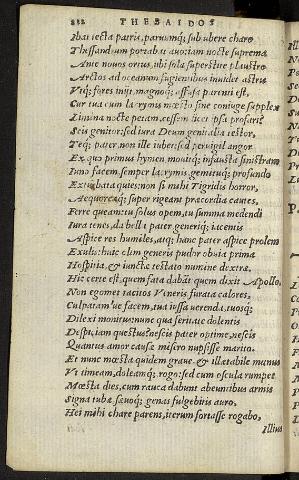 222 THEBAIDOS
Ibat iecta patria, paruumq; sub ubere charo
Thessandrum portabat auo: iam nocte suprema
Ante nouos ortus, ubi sola superstite plaustro
Arctos ad oceanum fugientibus inuidet astris
Vtq; fores inijt, magnoq; affusa parenti est,
Cur tua cum lacrymis mœsto sine coniuge supplex
Limina nocte petam, cessem licet ipsa profari
Scis genitor: sed iura Deum genialia testor,
Teq; pater, non ille iubet: sed peruigil angor
Ex quo primus hymen mouitq; infausta sinistram
Iuno facem, semper lacrymis, gemituq; profundo
Exturbata quies: non si mihi Tigridis horror,
Aequoreæq; super rigeant præcordia cautes,
Ferre queam: tu solus opem, tu summa medendi
Iura tenes, da bella pater generiq; iacentis
Aspice res humiles, atq; hanc pater aspice prolem
Exulis: huic olim generis pudor. obuia prima
Hospitia, & iunctæ testato numine dextræ.
Hic certe est, quem fata dabāt quem dixit Apollo,
Non egomet tacitos Veneris furata calores,
Culpatamue facem, tua iussa uerenda, tuosq;
Dilexi monitus: nunc qua feritate dolentis
Despiciam questus? nescis pater optime, nescis
Quantus amor causæ misero nupsisse marito.
Et nunc mœsta quidem graue & illætabile munus
Vt timeam, doleamq; rogo: sed cum oscula rumpet
Mœsta dies, cum rauca dabunt abeuntibus armis
Signa tubæ, sæuoq; genas fulgebitis auro,
Hei mihi chare parens, iterum fortasse rogabo,
Illius